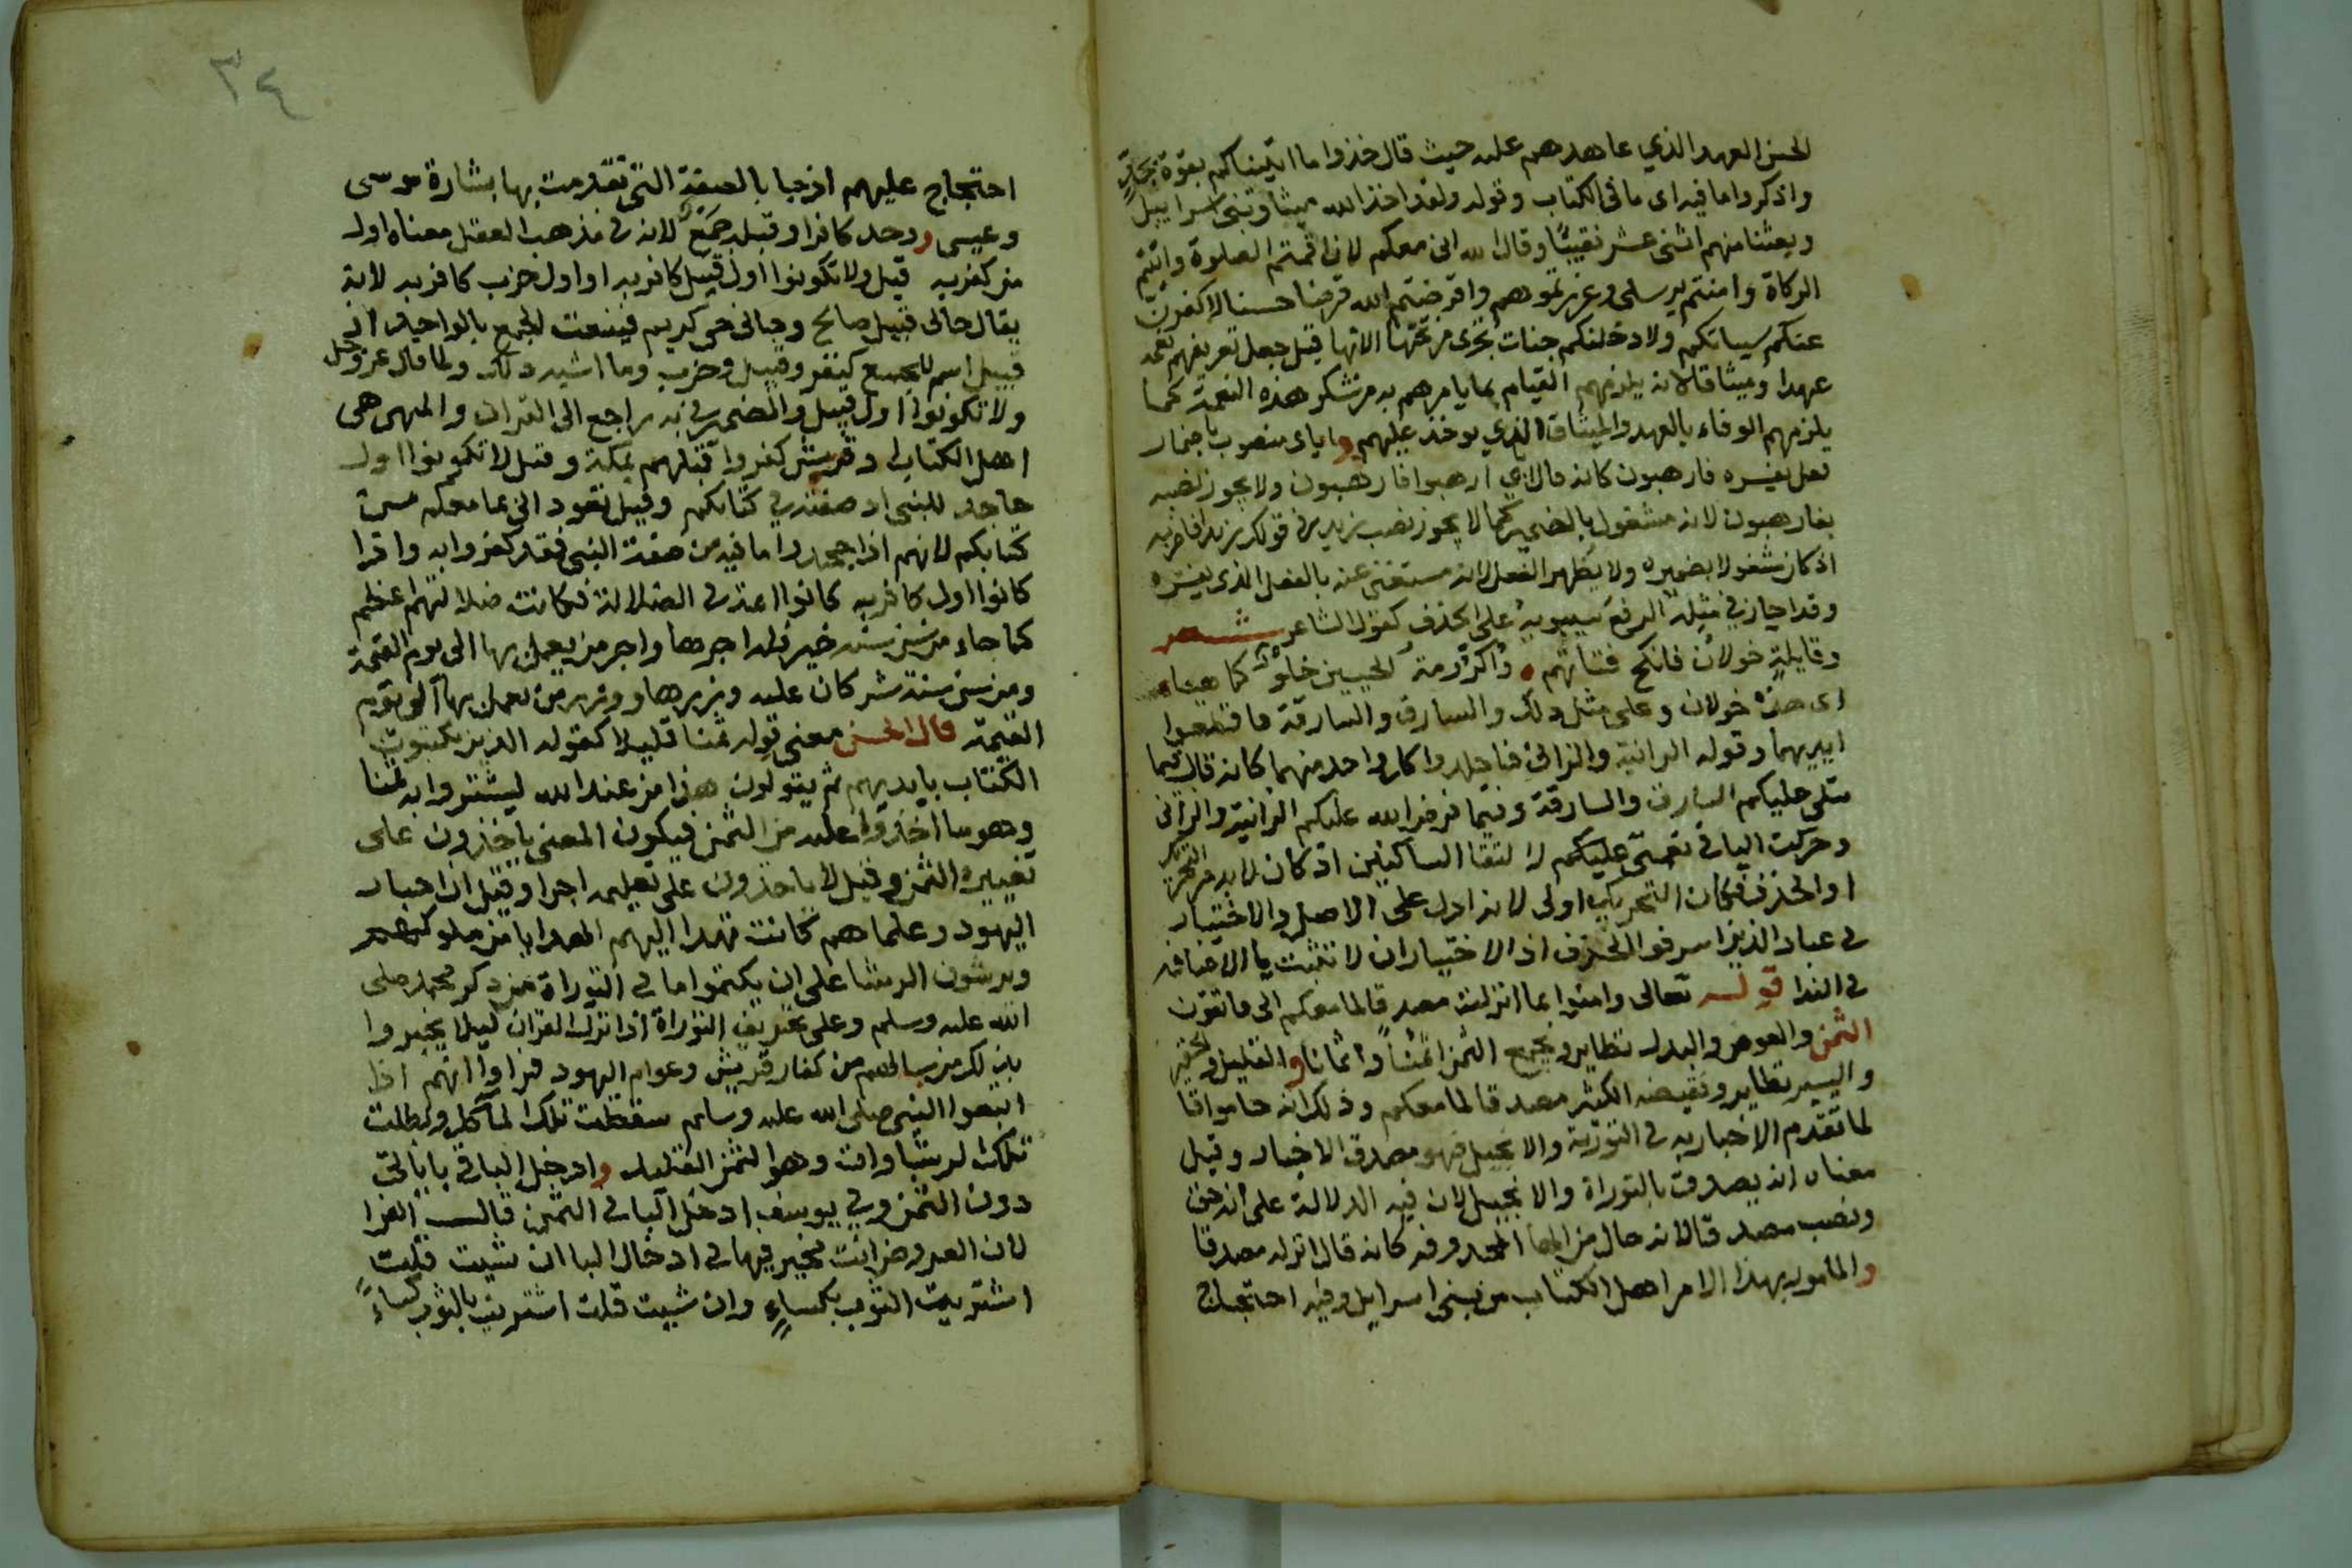 الحسن العهد الذي عاهدهم عليه حيث قال خذوا ما اتيناكم بقوة بجدٍّ
واذكروا ما فيه اى ما فى الكتاب وقوله ولقد اخذ الله ميثاق بنى اسراييل
وبعثنا منهم اثنى عشر نقيبًا وقال الله انى معكم لان اقمتم الصلوة واتيتم
الزكاة وامنتم برسلى وعزرتموهم واقرضتم الله قرضا حسنا لاكفرن
عنكم سياتكم ولادخلنكم جنات تجرى من تحتها الانهار قيل جعل تعريفهم نعمه
عهدا وميثاقا لانه يلزمهم القيام بما يامرهم به من شكر هذه النعمة كما
يلزمهم الوفاء بالعهد والميثاق الذي يوخذ عليهم واياى منصوب باضمار
فعل يفسره فارهبون كانه قال اياي ارهبوا فارهبون ولا يجوز نصبه
بفارهبون لانه مشغول بالضمير كما لا يجوز نصب زيد في قولك زيدا فاضربه
اذ كان مشغولا بضميره ولا يظهر الفعل لانه مستغنى عنه بالفعل الذى يفسره
وقد اجاز في مثله الرفع سيبويه على الحذف كقول الشاعر شعر
وقايلةٍ خولان فانكح فتاتهم ٠ واكرومة الحيين خلوٌ كما هيا
اى هذه خولان وعلى مثل ذلك والسارق والسارقة فاقطعوا
ايديهما وقوله الزانية والزانى فاجلدوا كل واحد منهما كانه قال فيما
يتلى عليكم السارق والسارقة وفيما فرض الله عليكم الزانية والزانى
وحركت اليا فى نعمتى عليكم لالتقا الساكنين اذ كان لا بد من التحريك
او الحذف فكان التحريك اولى لانه ادل على الاصل والاختيار
فى عباد الذين اسرفوا الحذف اذ الاختيار ان لا تثبت يا الاضافه
فى الندا قوله تعالى وامنوا بما انزلت مصدقًا لما معكم الى فاتقون
الثمن والعوض والبدل نظاير وجمع الثمن اثمنًا واثمانا والقليل والحقير
واليسير نظاير ونقيضه الكثير مصدقا لما معكم وذلك انه جا موافقا
لما تقدم الاخبار به فى التورية والانجيل فهو مصدق الاخبار وقيل
معناه انه يصدق بالتوراة والانجيل لان فيه الدلالة على انه حق
ونصب مصدقا لانه حال من الها المحذوفه كانه قال انزلته مصدقا
والمامور بهذا الامر اهل الكتاب من بنى اسرايل وفيه احتجاج
٣٤
احتجاج عليهم اذ جا بالصفة التى تقدمت بها بشارة موسى
وعيسى ووحد كافرا وقبله جمع لانه فى مذهب الفعل معناه اول
من كفر به قيل ولا تكونوا اول قبيل كافر به او اول حزب كافر به لانه
يقال جانى قبيل صالح وجانى حى كريم فينعت الجمع بالواحد اذ
قبيل اسم للجميع كنفر وقبيل وحزب وما اشبه ذلك ولما قال عز وجل
ولا تكونوا اول قبيل والضمير في به راجع الى القران والمنهى هى
اهل الكتاب وقريش كفروا قبلهم بمكة وقيل لا تكونوا اول
جاحد للنبى اذ صفته في كتابكم وقيل تعود الى ما معكم من
كتابكم لانهم اذا جحدوا ما فيه من صفة النبى فقد كفروا به واذا
كانوا اول كافر به كانوا ايمة فى الضلالة فكانت ضلالتهم اعظم
كما جاء من سن سنة خير فله اجرها واجر من يعمل بها الى يوم القيمة
ومن سن سنة شر كان عليه وزرها ووزر من يعمل بها الى يوم
القيمة قال الحسن معنى قوله ثمنا قليلا كقوله الذين يكتبون
الكتاب بايديهم ثم يقولون هذا من عند الله ليشتروا به ثمنا
وهو ما اخذوا عليه من الثمن فيكون المعنى ياخذون على
تغييره الثمن وقيل لا ياخذون على تعليمه اجرا وقيل ان احبار
اليهود وعلماهم كانت تهدا اليهم الهدايا من ملوكهم
ويرشون الرشا على ان يكتموا ما فى التوراة من ذكر محمد صلى
الله عليه وسلم وعلى تحريف التوراة اذا نزل القران ليلا يخبروا
بذلك من سالهم من كفار قريش وعوام اليهود فراوا انهم اذا
اتبعوا النبى صلى الله عليه وسلم سقطت تلك المآكل وبطلت
تلك الرشا وافت وهو الثمن القليل وادخل البا في باياتى
دون الثمن وفي يوسف ادخل البا فى الثمن قال الفرا
لان العروض انت مخير فيها فى ادخال البا ان شيت قلت
اشتريت الثوب بكساءٍ وان شيت قلت اشتريت بالثوب كساءً